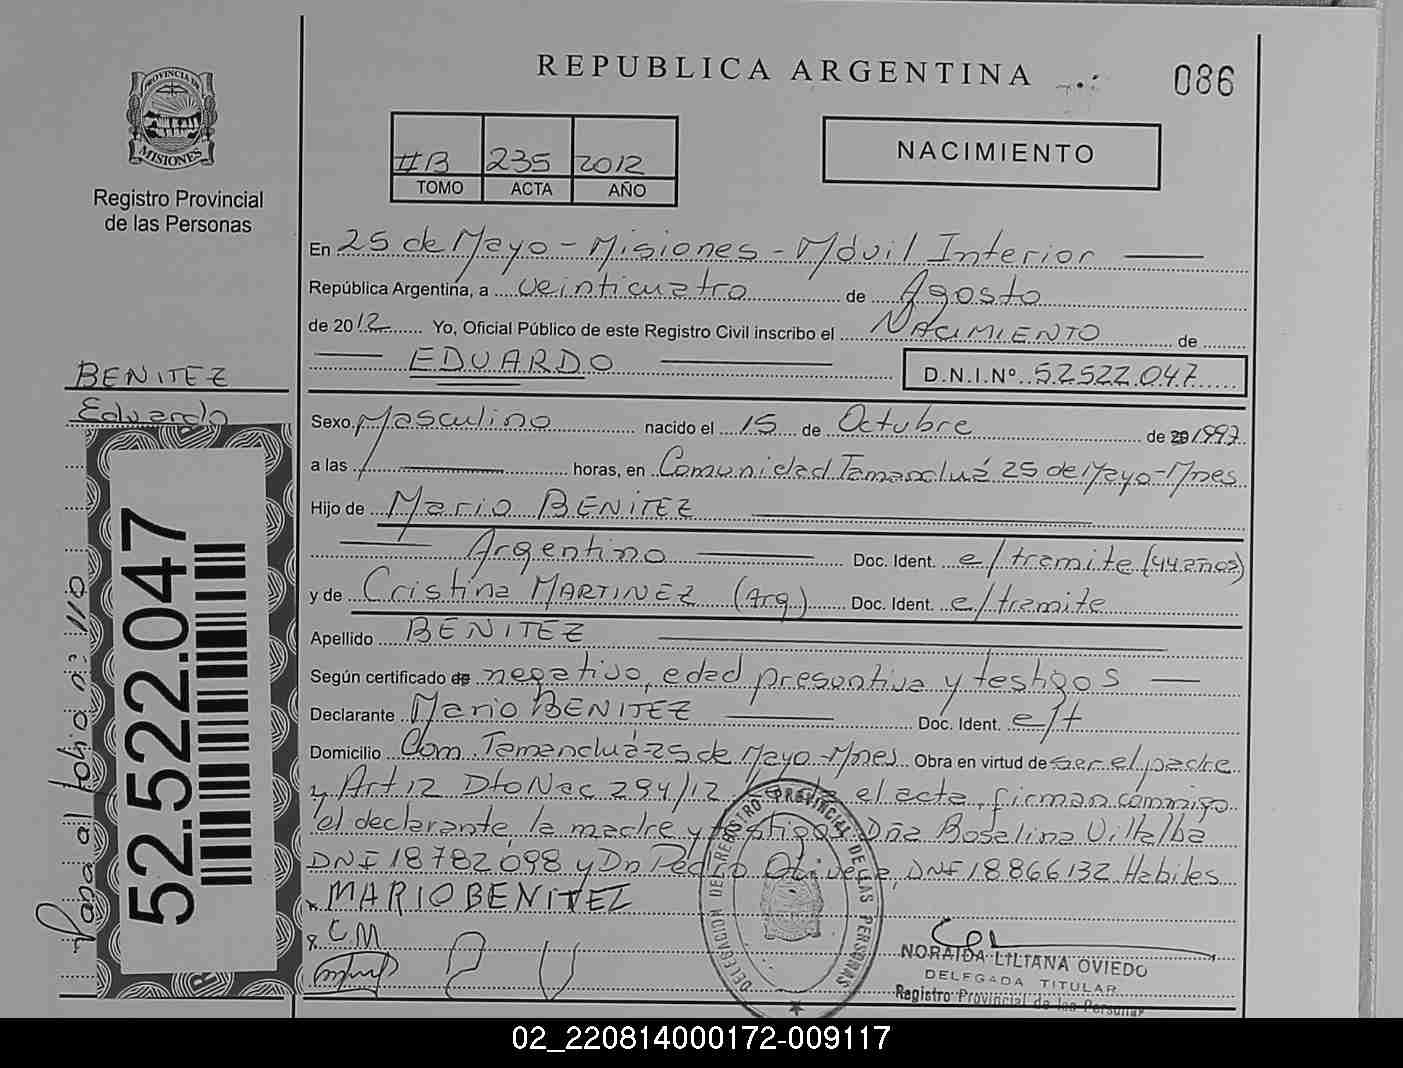 REPUBLICA ARGENTINA
086
PROVINCIA DE
MISIONES
Registro Provincial
de las Personas
#B 235 2012
TOMO ACTA AÑO
NACIMIENTO
En 25 de Mayo - Misiones - Móvil Interior
República Argentina, a veinticuatro de Agosto
de 2012 Yo, Oficial Público de este Registro Civil inscribo el NACIMIENTO de
EDUARDO D.N.I.Nº 52522.047
BENITEZ
Eduardo
Sexo Masculino nacido el 15 de Octubre de 20 1997
a las horas, en Comunidad Tamanduá 25 de Mayo-Mnes
Hijo de Mario BENITEZ
Argentino Doc. Ident. e/tramite (44 años)
y de Cristina MARTINEZ (Arg.) Doc. Ident. e/tramite
Apellido BENITEZ
Según certificado de negativo, edad presuntiva y testigos
Declarante Mario BENITEZ Doc. Ident. e/t
Domicilio Com. Tamanduá-25 de Mayo-Mnes Obra en virtud de ser el padre
y Art 12 Dto Nac 294/12. el acta, firman conmigo
el declarante, la madre y testigos Dña Rosalina Villalba
DNI 18782098 y Dn Pedro DNI 18.866132 Habiles
x MARIO BENITEZ
x C M
52.522.047
Pasa al folio nº 110
DELEGACION DEL REGISTRO PROVINCIAL DE LAS PERSONAS
NORAIDA LILIANA OVIEDO
DELEGADA TITULAR
Registro Provincial de las Personas
02_220814000172-009117